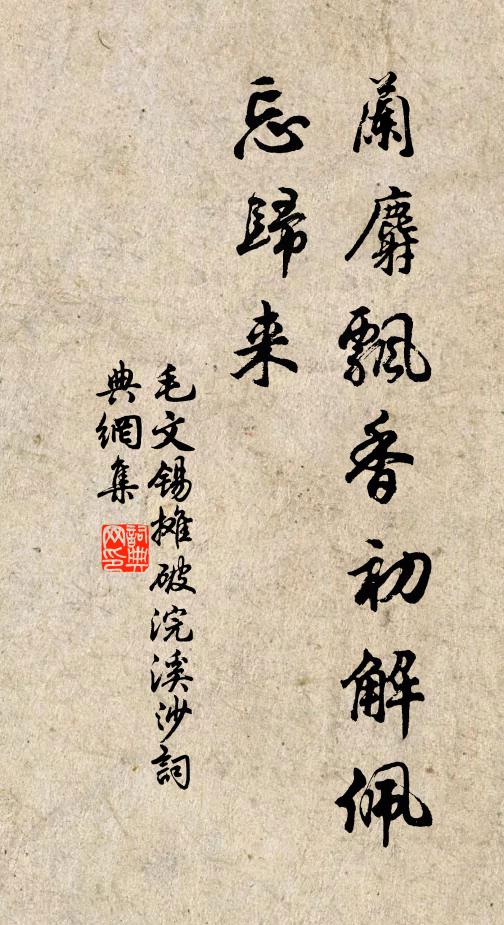 蘭麝飄香初解佩
忘歸来
毛文锡攤破浣溪沙詞
典網集
詞典網印